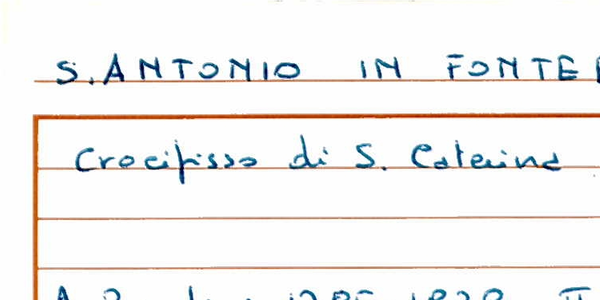 S. ANTONIO IN FONTE
Crocifisso di S. Caterina